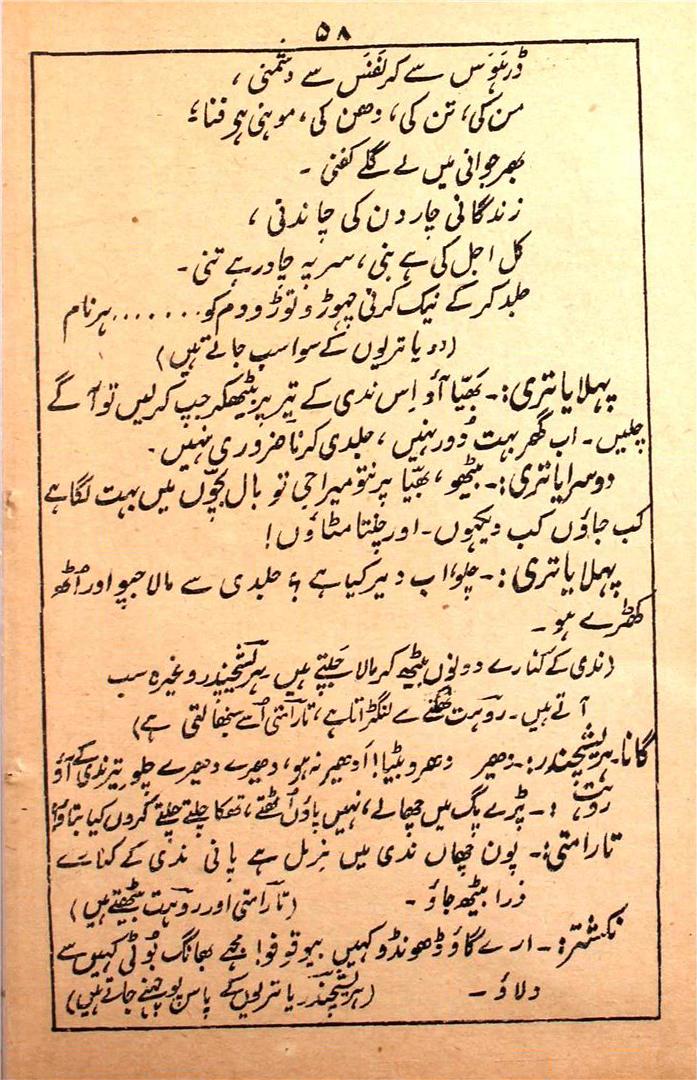 ۵۸
ڈر ہَوَس سے کر نَفَس سے دشمنی ،
من کی، تن کی، دھن کی، موہنی ہو فنا؛
بھر جوانی میں لے گلے کفنی ۔
زندگانی چار دن کی چاندنی ،
کل اجل کی ہے بنی ، سر پہ چادر ہے تنی ۔
جلد کر کے نیک کرنی چھوڑو توڑو دم کو....... ہر نام
(دو یاتریوں کے سوا سب جاتے ہیں)
پہلا یاتری:۔ بَھیّا آؤ اِس ندی کے تیر پر بیٹھکر جپ کر لیں تو آگے
چلیں۔ اب گھر بہت دُور نہیں ، جلدی کرنا ضروری نہیں ۔
دوسرا یاتری:۔ بیٹھو ، بھیّا پرنتو میرا جی تو بال بچّوں میں بہت لگا ہے
کب جاؤں کب دیکھوں ۔ اور چنتا مٹاؤں !
پہلا یاتری:۔ چلو، اب دیر کیا ہے ؟ جلدی سے مالا جپو اور اُٹھ
کھڑے ہو ۔
(ندی کے کنارے دونوں بیٹھ کر مالا جپتے ہیں ہریشچندر وغیرہ سب
آتے ہیں ۔ روہت تھکنے سے لنگڑاتا ہے ، تارامتی اُسے سنبھالتی ہے)
گانا۔ ہریشچندر:۔ دھیر دھرو بیٹا! اَدھیر نہ ہو، دھیرے دھیرے چلو تیر ندی کے آؤ
روہت :۔ پڑے پگ میں چھالے ، نہیں پاؤں اُٹھتے ، تھکا چلتے چلتے کروں کیا بتاؤ
تارامتی:۔ پون چھاں ندی میں نِرمل ہے پانی ندی کے کنارے
ذرا بیٹھ جاؤ ۔ (تارامتی اور روہت بیٹھتے ہیں)
نکشتر:۔ ارے گاؤ ڈھونڈو کہیں بیوقوفو! مجھے بھانگ بُوٹی کہیں سے
دلاؤ ۔ (ہریشچندر یاتریوں کے پاس پوچھنے جاتے ہیں)